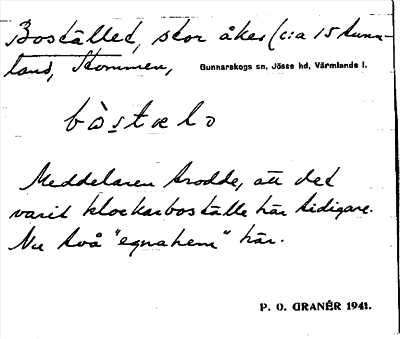 Boställed, stor åker (c:a 15 tunn-
land, Stommen, Gunnarskogs sn, Jösse hd, Värmlands l.
bòstælo
Meddelaren trodde, att det
varit klockarboställe här tidigare.
Nu två "egnahem" här.
P. O. GRANÉR 1941.